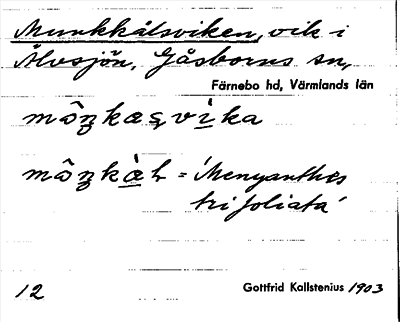 Munkkålsviken, vik i
Älvsjön, Gåsborns sn,
Färnebo hd, Värmlands län
= 'Menyanthes
trifoliata'
12 Gottfrid Kallstenius 1903